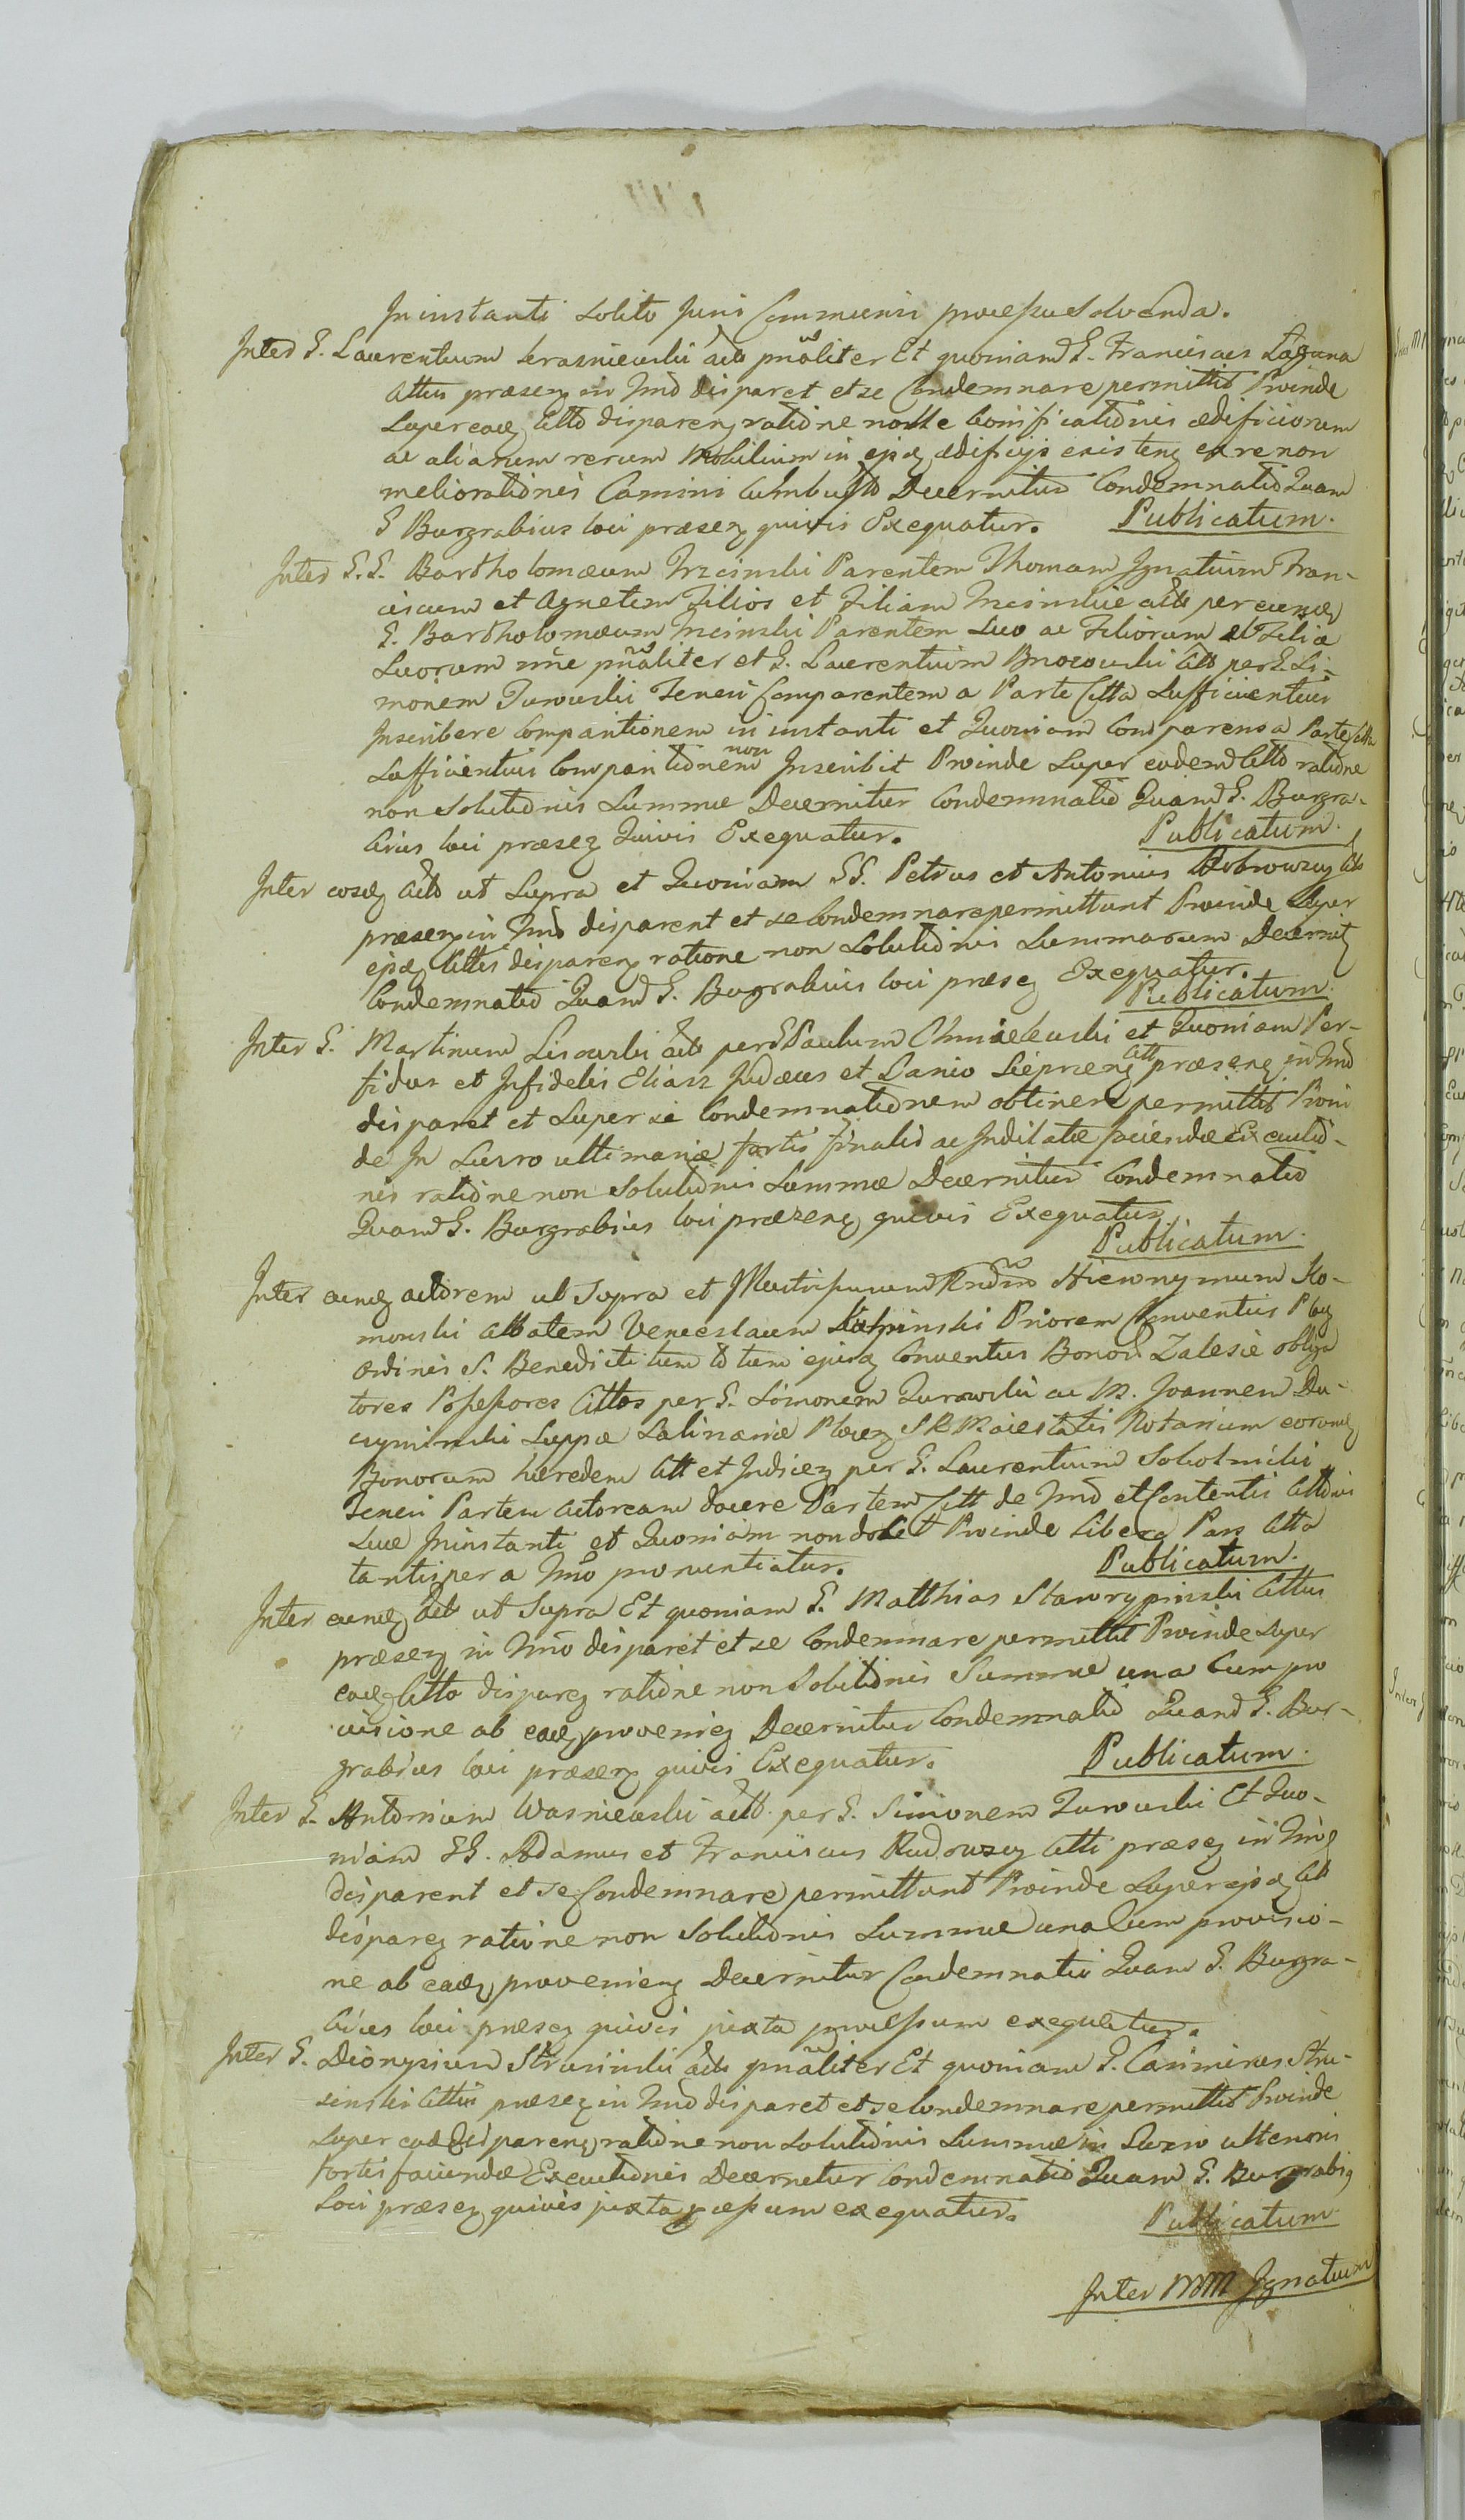 In instanti solito Juri Communi processu solvenda.
Inter G. Laurentium Krasniewski Act. pnaliter Et quoniam G. Franciscus Laguna
Cittus praesen in Tmo disparet et se Condemnare permittit Proinde
Super eodem Citto disparen ratione non bonificationis aedificiorum
ac aliarum rerum Mobilium in ejsdem aedificijs existen ex re non
meliorationis Camini Decernitur Condemnatio Quam
G Burgrabius loci praesen quivis Exequatur. Publicatum.
Inter G.G. Bartholomaeum Trzcinski Parentem Thomam Ignatium Fran-
ciscum et Agnetem Filios et Filiam Trzcinskie Act. per eundem
G. Bartholomaeum Trzcinski Parentem Suo ac Filiorum et Filiae
Suorum nne pnaliter et G. Laurentium Citt per G. Si-
monem Turowski Teneri Comparentem a Parte Citta Sufficientius
Inscribere Comparitionem in instanti et Quoniam Comparens a Parte Citta
Sufficientius Comparitionem non Inscribit Proinde Super eodem Citto ratione
non Solutionis Summae Decernitur Condemnatio Quam G. Burgra-
bius loci praesen Quivis Exequatur. Publicatum.
Inter eosdem Act ut Supra et Quoniam GG. Petrus et Antonius Bobrowscy Citt
praesen in Tmo disparent et se Condemnare permittunt Proinde Super
ejsdem Cittis disparen ratione non Solutionis Summarum Decernit
Condemnatio Quam G. Burgrabius loci praesen Exequatur.
Publicatum.
Inter G. Martinum Lisowski Act per G Paulum Chmielewski et Quoniam Per-
fidus et Infidelis Eliasz Judaeus et Lanio Sieprcen Citt praesen in Tmo
disparet et Super se Condemnationem obtinere permittit Proin
de In Lucro ultimariae fortis finalis ac Indilatae faciendae Executio-
nis ratione non Solutionis Summae Decernitur Condemnatio
Quam G. Burgrabius loci praesen quivis Exequatur
Publicatum.
Inter eundem actorem ut Supra et Illustrissimum Rndmo Hieronymum Ko-
mowski Abbatem Venceslaum Priorem Conventus Ploc
Ordinis S. Benedicti tum totum ejusdem Conventus Bonor Zalesie obliga
tores Possessores Cittos per G. Simonem Turowski ac M. Joannem Du-
czyminski Suppae Salinariae Plocen S R Maiestatis Notarium eorundem
Bonorum haeredem Citt et Indicen per G. Laurentium Sokolnicki
Teneri Partem Actoream docere Partem Citt de Tmo et Contentis Cittnis
Suae In instanti et Quoniam non docet Proinde libera Pars Citta
tantisper a Tmo pronuntiatur. Publicatum.
Inter eundem Act ut Supra Et quoniam G. Matthias Cittus
praesen in Tmo disparet et se Condemnare permittit Proinde Super
eodem Citto disparen ratione non Solutionis Summae una Cum pro
visione ab eadem provenien Decernitur Condemnatio Quam G. Bur-
grabius loci praesen quivis Exequatur. Publicatum.
Inter G. Antonium Wasniewski Act. per G. Simonem Turowski Et Quo-
niam GG. Adamus et Franciscus Rudowscy Citti praesen in Tmo
disparent et se Condemnare permittunt Proinde Super ejsdem Citt
disparen ratione non Solutionis Summae una Cum provisio-
ne ab eadem provenien Decernitur Condemnatio Quam G. Burgra-
bius loci praesen quivis juxta processum exequatur.
Inter G. Dionysium Strusinski Act pnaliter Et quoniam G. Casimirus Stru-
sinski Cittus praesen in Tmo disparet et se Condemnare permittit Proinde
Super eodem disparen ratione non Solutionis Summae in Lucro ulterioris
fortis faciendae Executionis Decernitur Condemnatio Quam G. Burgrabi
Loci praesen quivis juxta processum exequatur. Publicatum
Inter MM Ignatium